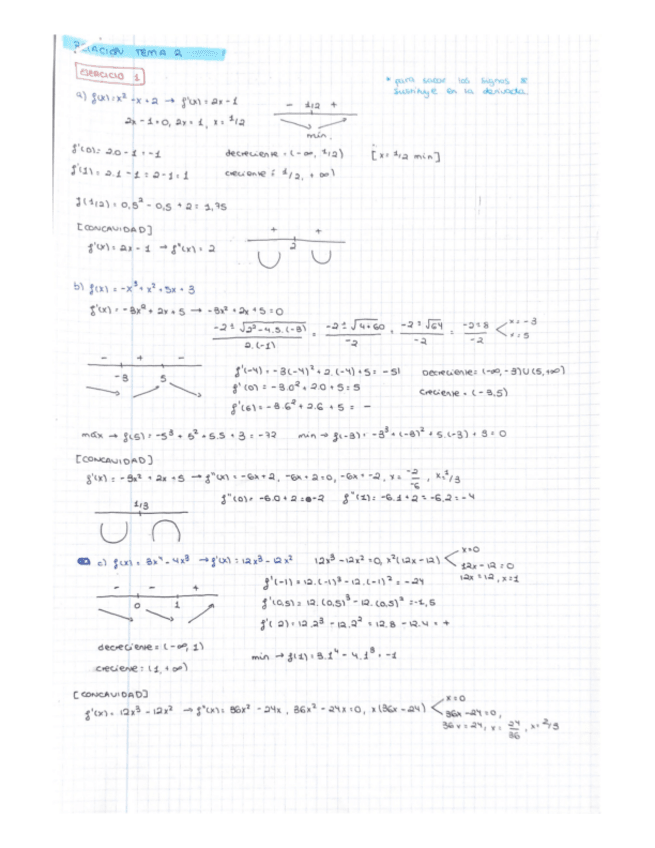 RELACIÓN TEMA 2
EJERCICIO 1
* para sacar los signos se
sustituye en la derivada.
a) f(x) = x² - x + 2 → f'(x) = 2x - 1
- 1/2 +
2x - 1 = 0, 2x = 1, x = 1/2
min.
f'(0) = 2·0 - 1 = -1
decreciente = (-∞, 1/2)
[x = 1/2 min]
f'(1) = 2·1 - 1 = 2 - 1 = 1
creciente = (1/2, +∞)
f(1/2) = 0,5² - 0,5 + 2 = 1,75
[CONCAVIDAD]
+ +
2
f'(x) = 2x - 1 → f''(x) = 2
b) f(x) = -x³ + x² + 5x + 3
f'(x) = -3x² + 2x + 5 → -3x² + 2x + 5 = 0
-2 ± √2² - 4·5·(-3) / 2·(-1) = -2 ± √4 + 60 / -2 = -2 ± √64 / -2 = -2 ± 8 / -2 < x = -3
x = 5
- + -
-3 5
f'(-4) = -3(-4)² + 2·(-4) + 5 = -51
Decreciente = (-∞, -3) ∪ (5, +∞)
f'(0) = -3·0² + 2·0 + 5 = 5
creciente = (-3,5)
f'(6) = -3·6² + 2·6 + 5 = -
máx → f(5) = -5³ + 5² + 5·5 + 3 = -72
min → f(-3) = -3³ + (-3)² + 5·(-3) + 3 = 0
[CONCAVIDAD]
f'(x) = -3x² + 2x + 5 → f''(x) = -6x + 2, -6x + 2 = 0, -6x = -2, x = -2/-6, x = 1/3
1/3
f''(0) = -6·0 + 2 = -2
f''(1) = -6·1 + 2 = -6,2 = -4
c) f(x) = 3x⁴ - 4x³ → f'(x) = 12x³ - 12x²
12x³ - 12x² = 0, x²(12x - 12) < x = 0
12x - 12 = 0
12x = 12, x = 1
- - +
0 1
f'(-1) = 12·(-1)³ - 12·(-1)² = -24
f'(0,5) = 12·(0,5)³ - 12·(0,5)² = -1,5
f'(2) = 12·2³ - 12·2² = 12·8 - 12·4 = +
decreciente = (-∞, 1)
min → f(1) = 3·1⁴ - 4·1³ = -1
creciente = (1, +∞)
[CONCAVIDAD]
f'(x) = 12x³ - 12x² → f''(x) = 36x² - 24x, 36x² - 24x = 0, x(36x - 24) < x = 0
36x - 24 = 0,
36x = 24, x = 24/36, x = 2/3